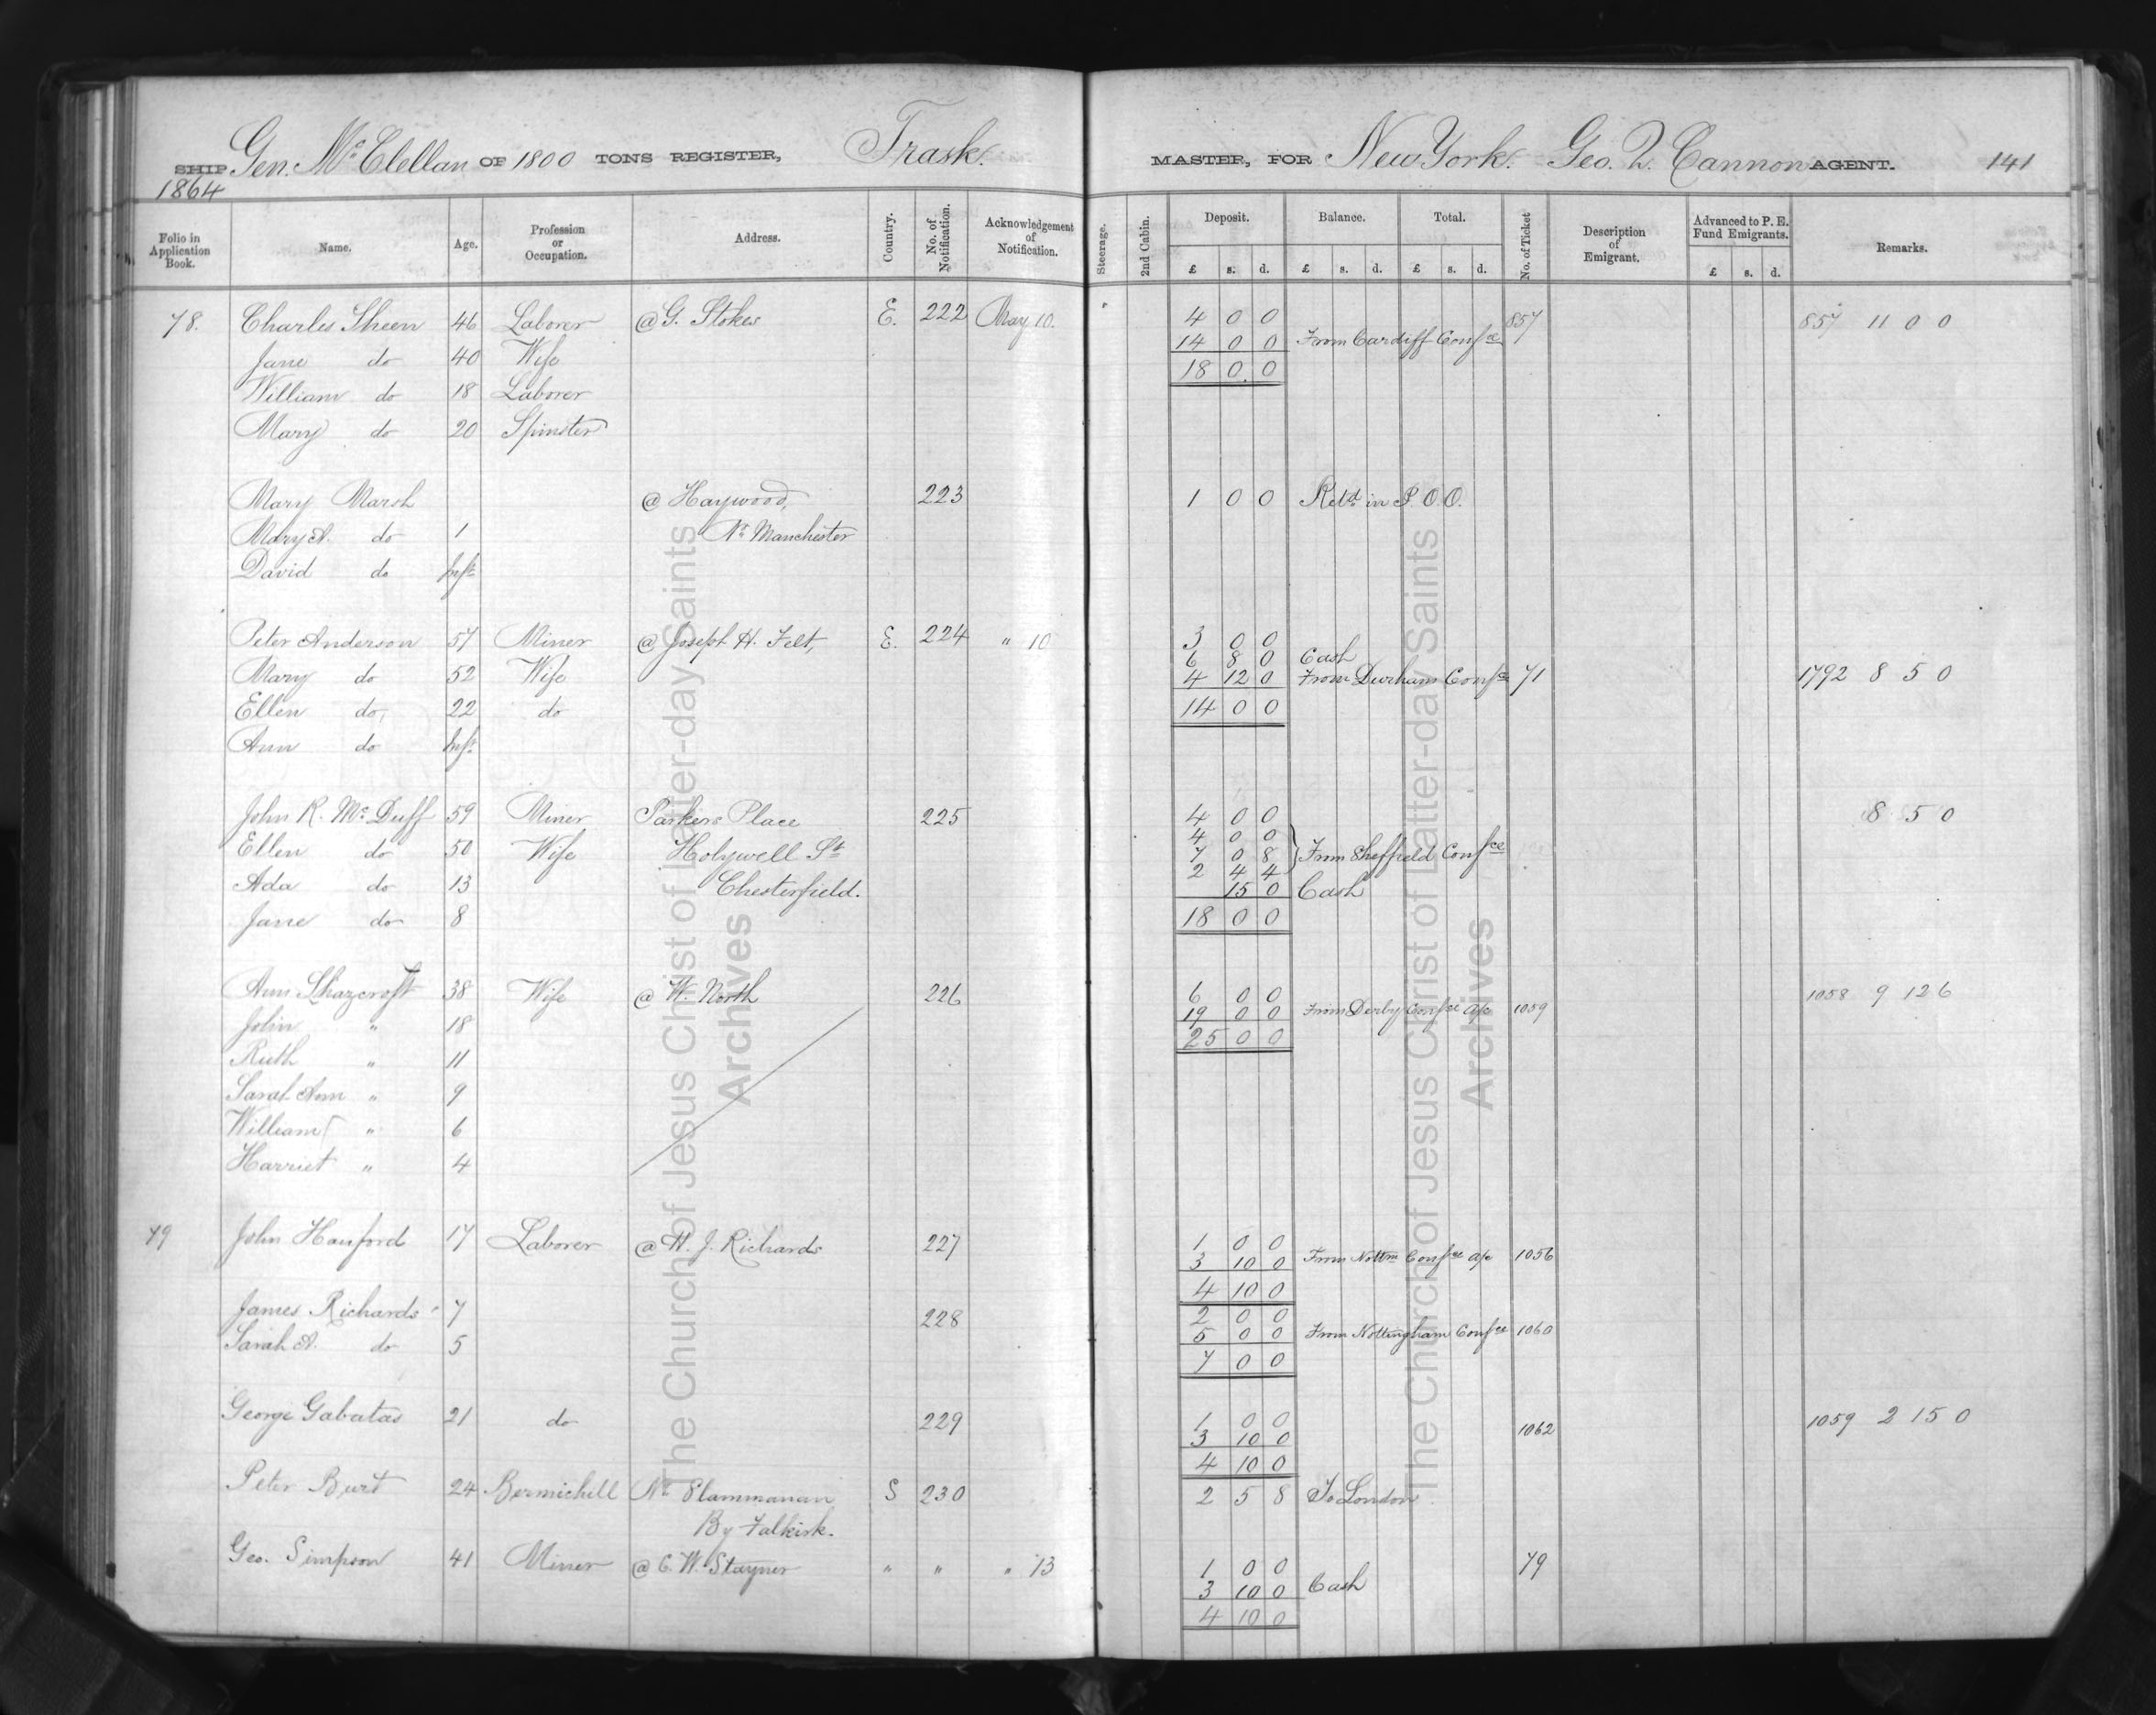 SHIP Gen. McClellan OF 1800 TONS REGISTER, Trask. MASTER, FOR New York. Geo. Q. Cannon AGENT. 141
1864
Folio in Application Book. Name. Age. Profession or Occupation. Address. Country. No. of Notification. Acknowledgement of Notification. Steerage. 2nd Cabin. Deposit. Balance. Total. No. of Ticket Description of Emigrant. Advanced to P. E. Fund Emigrants. Remarks.
£ s. d. £ s. d. £ s. d. £ s. d.
78. Charles Sheen 46 Laborer @ G. Stokes E. 222 May 10. 4 0 0 857 857 11 0 0
14 0 0 From Cardiff Confce
Jane do 40 Wife 18 0 0
William do 18 Laborer
Mary do 20 Spinster
Mary Marsh @ Haywood, 223 1 0 0 Retd. in P.O.O.
Mary A. do 1 Nr. Manchester
David do Inft.
Peter Anderson 57 Miner @ Joseph H. Felt, E. 224 " 10 3 0 0
6 8 0 Cash
Mary do 52 Wife 4 12 0 From Durham Confce 71 1792 8 5 0
Ellen do, 22 do 14 0 0
Ann do Inft.
John R. Mc Duff 59 Miner Parkers Place 225 4 0 0 8 5 0
4 0 0
Ellen do 50 Wife Holywell St 7 0 8 From Sheffield Confce
2 4 4
Ada do 13 Chesterfield. 15 0 Cash
Jane do 8 18 0 0
Ann Shazcroft 38 Wife @ W. North 226 6 0 0 1058 9 12 6
19 0 0 From Derby Confce a/c 1059
John " 18 25 0 0
Ruth " 11
Sarah Ann " 9
William " 6
Harriet " 4
79 John Hanford 17 Laborer @ W. J. Richards 227 1 0 0
3 10 0 From Nottm Confce a/c 1056
4 10 0
James Richards 7 228 2 0 0
Sarah A. do 5 5 0 0 From Nottingham Confce 1060
7 0 0
George Gabatas 21 do 229 1 0 0 1062 1059 2 15 0
3 10 0
4 10 0
Peter Burt 24 Bermichill Nr. Slammanan S 230 2 5 8 To London
By Falkirk.
Geo. Simpson 41 Miner @ C. W. Stayner " " " 13 1 0 0 79
3 10 0 Cash
4 10 0
The Church of Jesus Christ of Latter-day Saints
Archives
The Church of Jesus Christ of Latter-day Saints
Archives